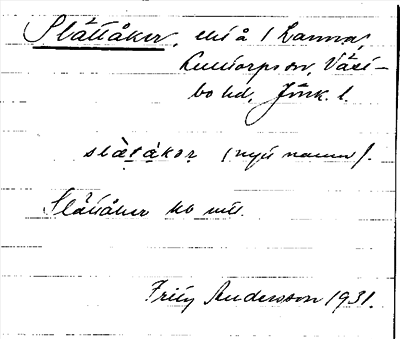 Slättåker, els å 1 Lanna,
Kulltorps sn, Väst-
bo hd, Jönk. l.
slàtåkər (nytt namn).
Slättåker kb mtl.
Fritz Andersson 1931.